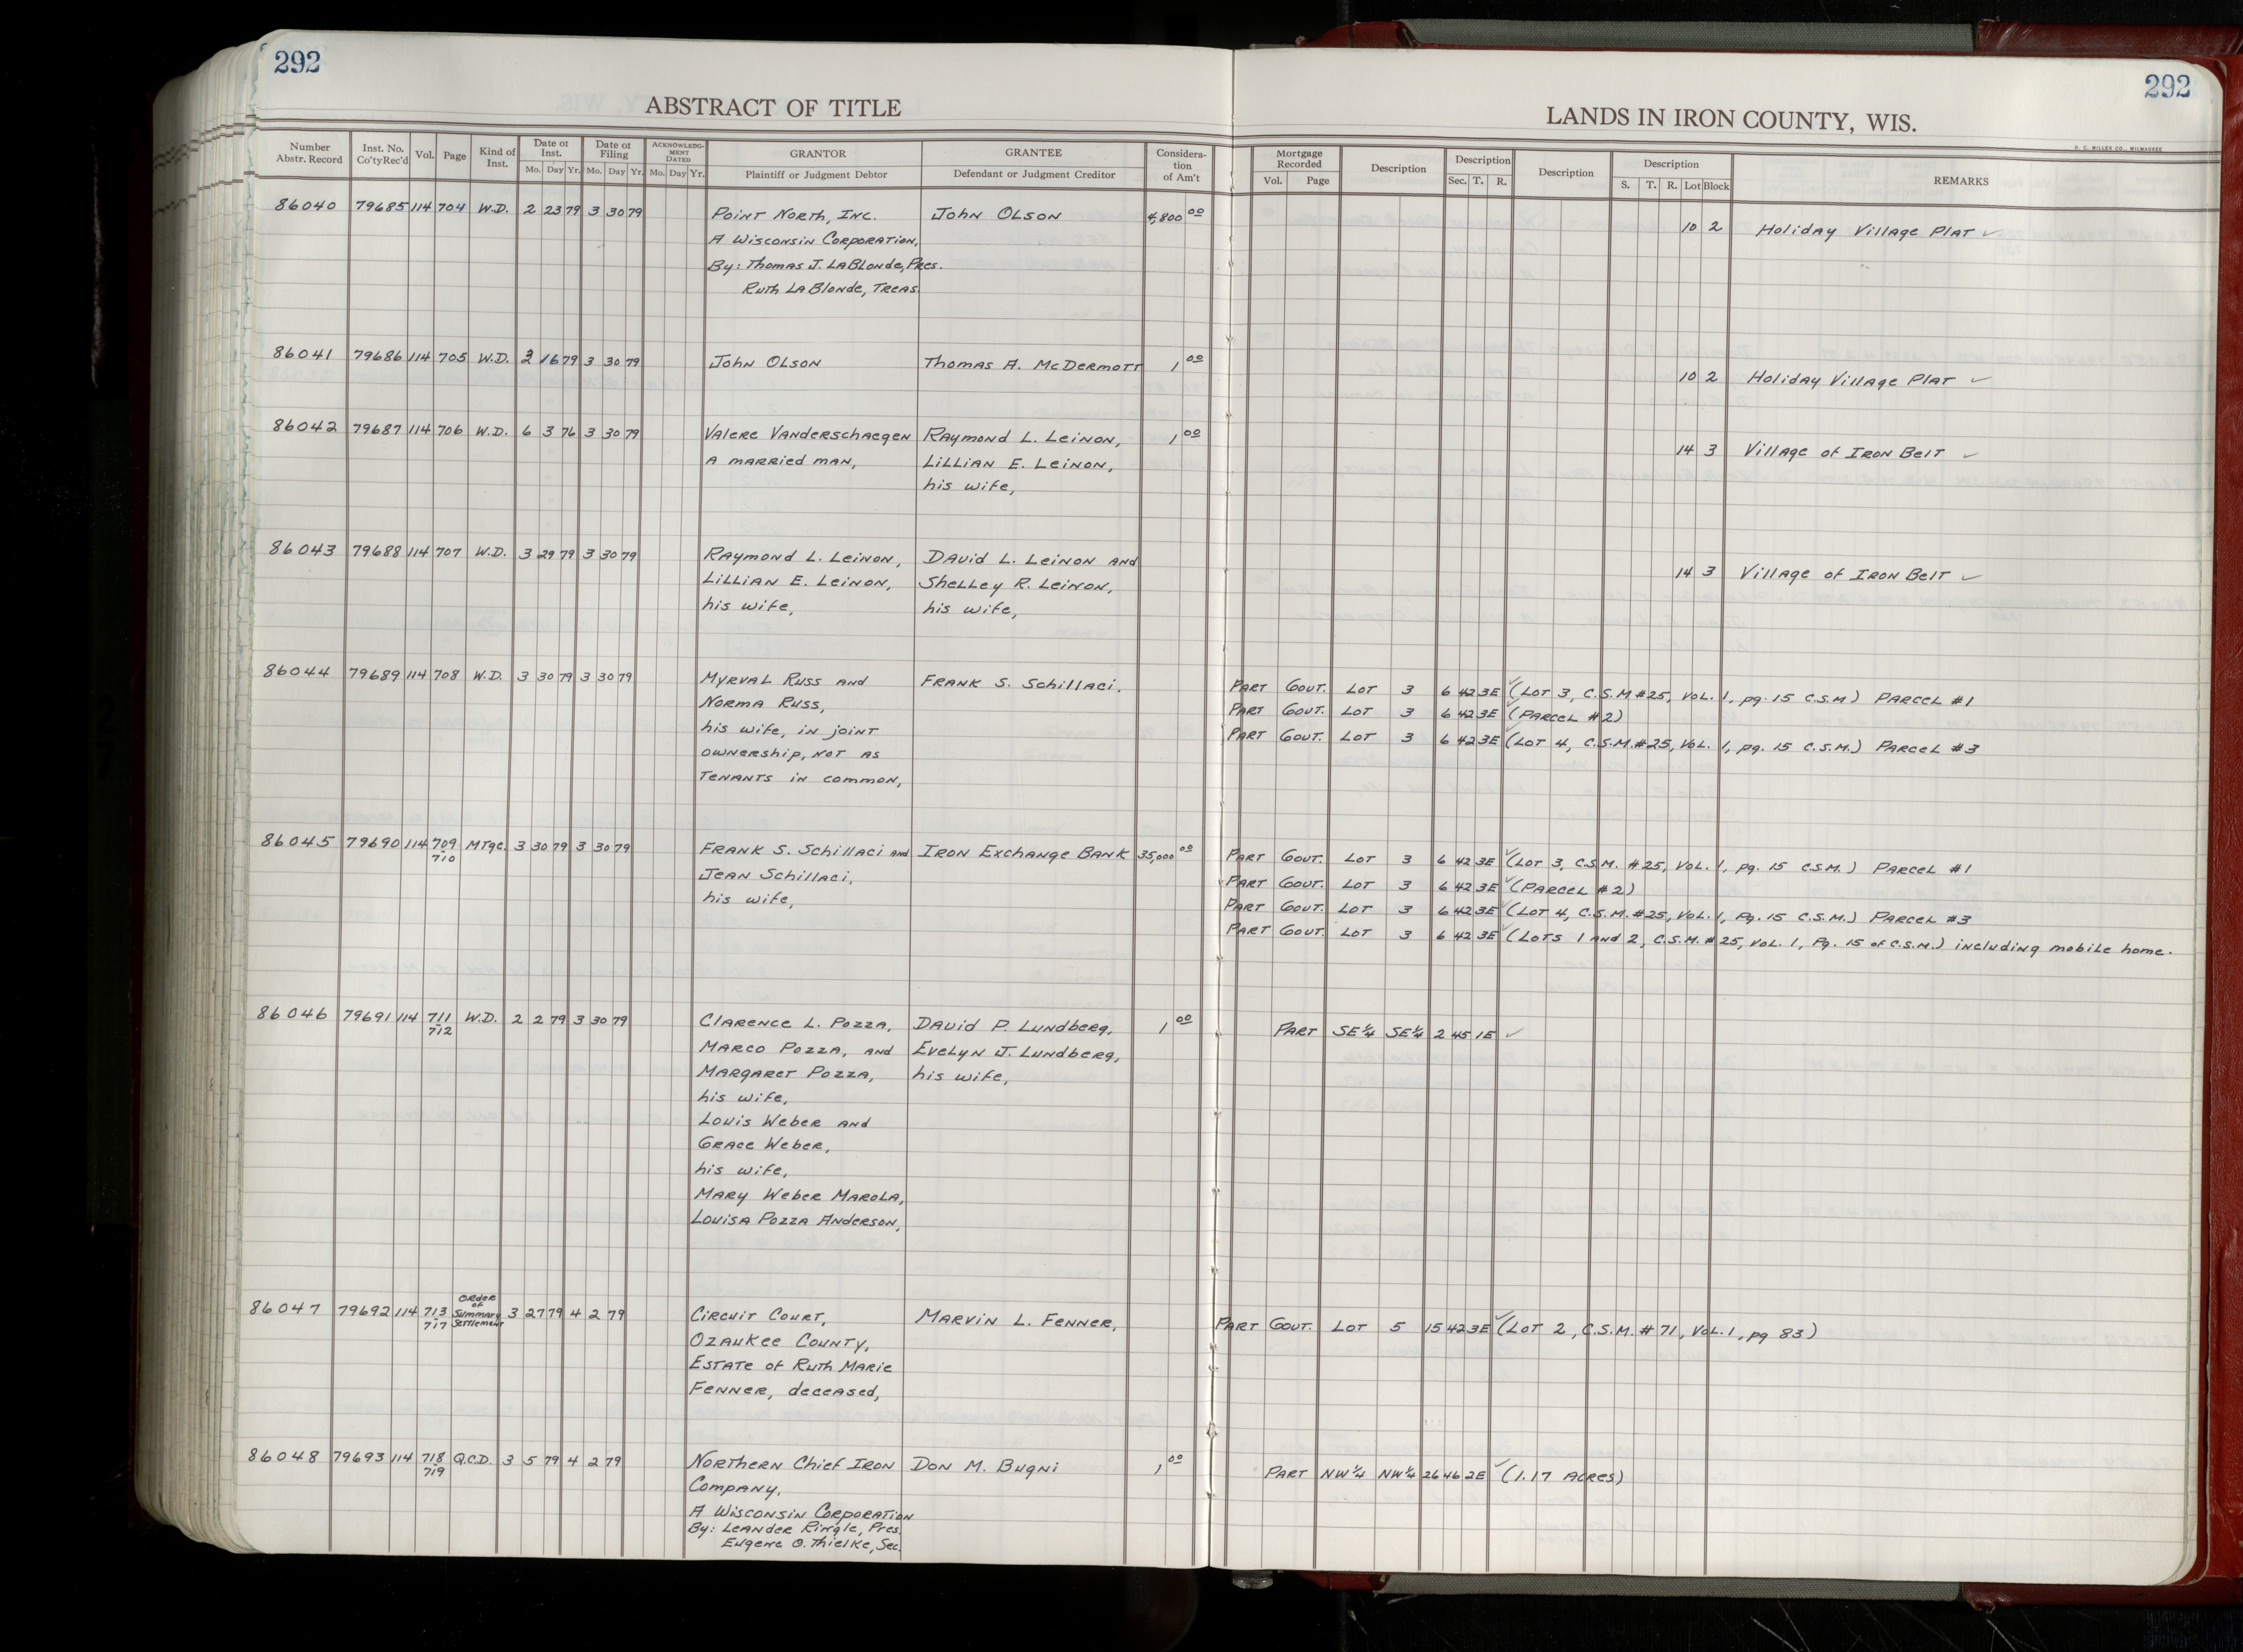 292
292
ABSTRACT OF TITLE
LANDS IN IRON COUNTY, WIS.
H. C. MILLER CO., MILWAUKEE
Number Abstr. Record | Inst. No. Co'ty Rec'd | Vol. | Page | Kind of Inst. | Date of Inst. Mo. Day Yr. | Date of Filing Mo. Day Yr. | ACKNOWLEDGMENT DATED Mo. Day Yr. | GRANTOR Plaintiff or Judgment Debtor | GRANTEE Defendant or Judgment Creditor | Consideration of Am't | Mortgage Recorded Vol. Page | Description | Description Sec. T. R. | Description | Description S. T. R. Lot Block | REMARKS
86040 79685 114 704 W.D. 2 23 79 3 30 79 Point North, Inc. John Olson 4,800 00 10 2 Holiday Village Plat ✓
A Wisconsin Corporation,
By: Thomas J. LaBlonde, Pres.
Ruth LaBlonde, Treas.
86041 79686 114 705 W.D. 3 16 79 3 30 79 John Olson Thomas A. McDermott 1 00 10 2 Holiday Village Plat ✓
86042 79687 114 706 W.D. 6 3 76 3 30 79 Valere Vanderschaegen Raymond L. Leinon, 1 00 14 3 Village of Iron Belt ✓
a married man, Lillian E. Leinon,
his wife,
86043 79688 114 707 W.D. 3 29 79 3 30 79 Raymond L. Leinon, David L. Leinon and 14 3 Village of Iron Belt ✓
Lillian E. Leinon, Shelley R. Leinon,
his wife, his wife,
86044 79689 114 708 W.D. 3 30 79 3 30 79 Myrval Russ and Frank S. Schillaci. Part Gout. Lot 3 6 42 3E ✓ (Lot 3, C.S.M. #25, Vol. 1, pg. 15 C.S.M) Parcel #1
Norma Russ, Part Gout. Lot 3 6 42 3E ✓ (Parcel #2)
his wife, in joint Part Gout. Lot 3 6 42 3E ✓ (Lot 4, C.S.M. #25, Vol. 1, pg. 15 C.S.M.) Parcel #3
ownership, not as
tenants in common,
86045 79690 114 709-710 Mtge. 3 30 79 3 30 79 Frank S. Schillaci and Iron Exchange Bank 35,000 00 Part Gout. Lot 3 6 42 3E ✓ (Lot 3, C.S.M. #25, Vol. 1, pg. 15 C.S.M.) Parcel #1
Jean Schillaci, Part Gout. Lot 3 6 42 3E ✓ (Parcel #2)
his wife, Part Gout. Lot 3 6 42 3E ✓ (Lot 4, C.S.M. #25, Vol. 1, Pg. 15 C.S.M.) Parcel #3
Part Gout. Lot 3 6 42 3E ✓ (Lots 1 and 2, C.S.M. #25, Vol. 1, Pg. 15 of C.S.M.) including mobile home.
86046 79691 114 711-712 W.D. 2 2 79 3 30 79 Clarence L. Pozza, David P. Lundberg, 1 00 Part SE¼ SE¼ 2 45 1E ✓
Marco Pozza, and Evelyn J. Lundberg,
Margaret Pozza, his wife,
his wife,
Louis Weber and
Grace Weber,
his wife,
Mary Weber Marola,
Louisa Pozza Anderson,
86047 79692 114 713-717 Order of Summary Settlement 3 27 79 4 2 79 Circuit Court, Marvin L. Fenner, Part Gout. Lot 5 15 42 3E ✓ (Lot 2, C.S.M. #71, Vol. 1, pg 83)
Ozaukee County,
Estate of Ruth Marie
Fenner, deceased,
86048 79693 114 718-719 Q.C.D. 3 5 79 4 2 79 Northern Chief Iron Don M. Bugni 1 00 Part NW¼ NW¼ 26 46 2E ✓ (1.17 Acres)
Company,
A Wisconsin Corporation
By: Leander Ringle, Pres.
Eugene O. Thielke, Sec.